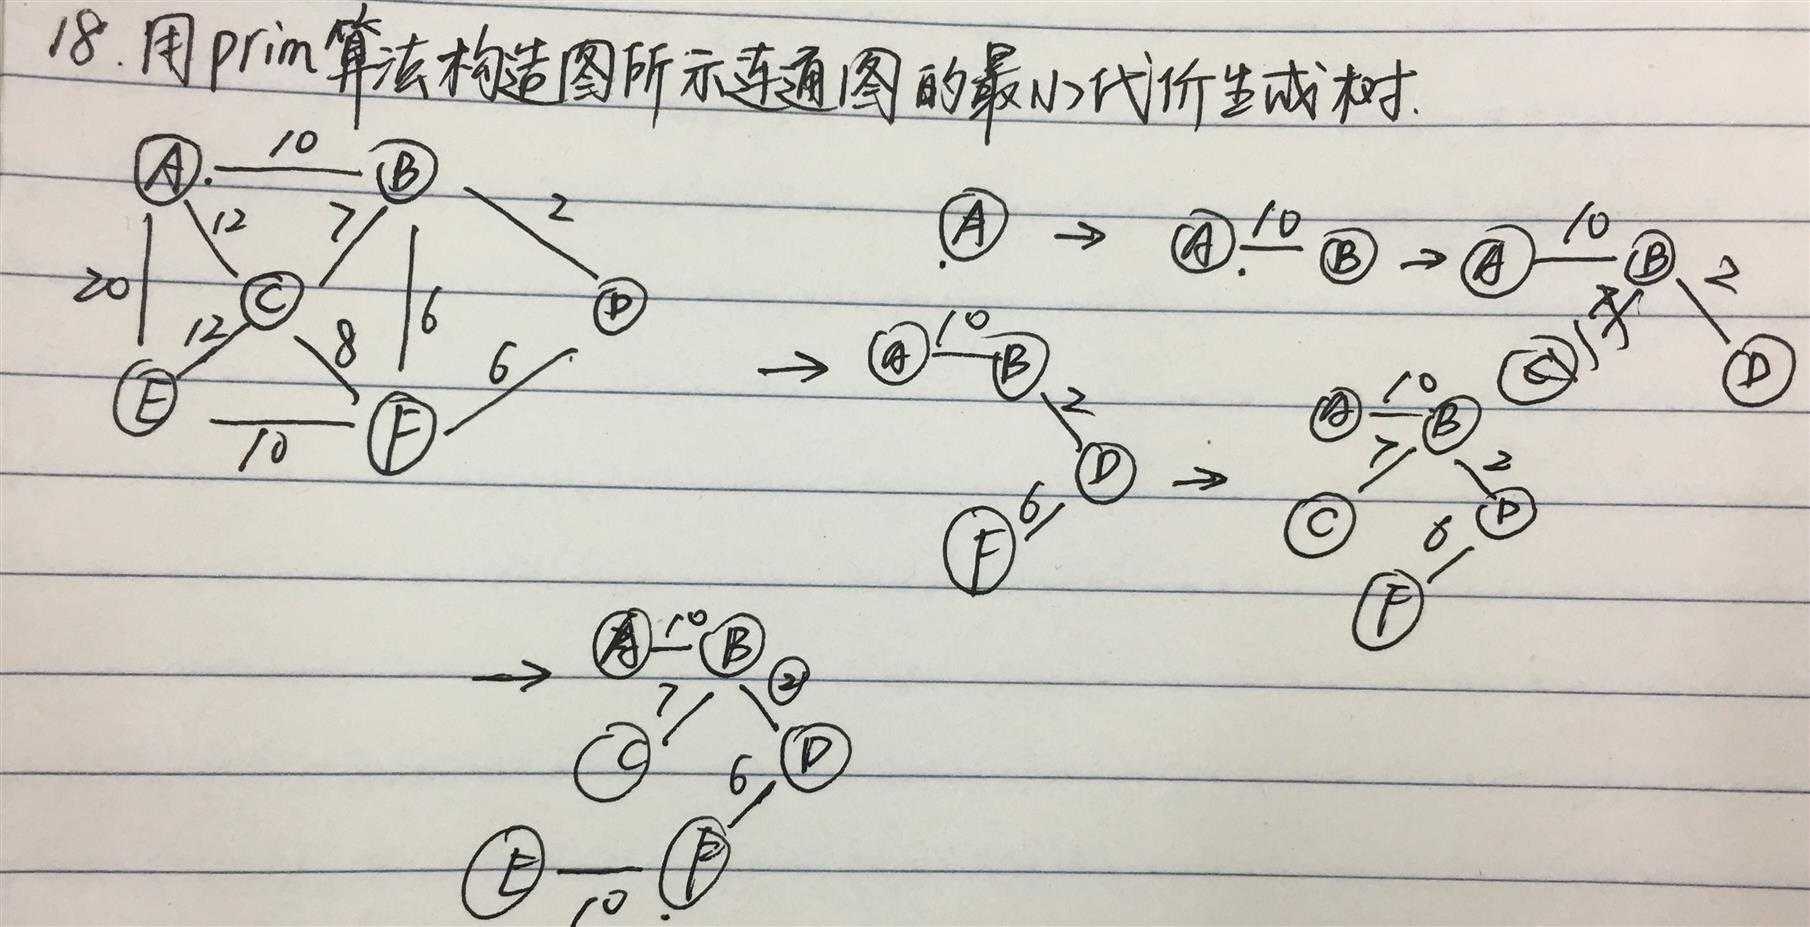 18.用prim算法构造图所示连通图的最小代价生成树.
A 10 B
12 7 2
20 C 6 D
12 8 6
E 10 F
A → A 10 B → A 10 B 2
D
→ A 10 B 2 D 6 F
→ A 10 B 7 2 C D 6 F
→ A 10 B 2
7
C D
6
E 10 F